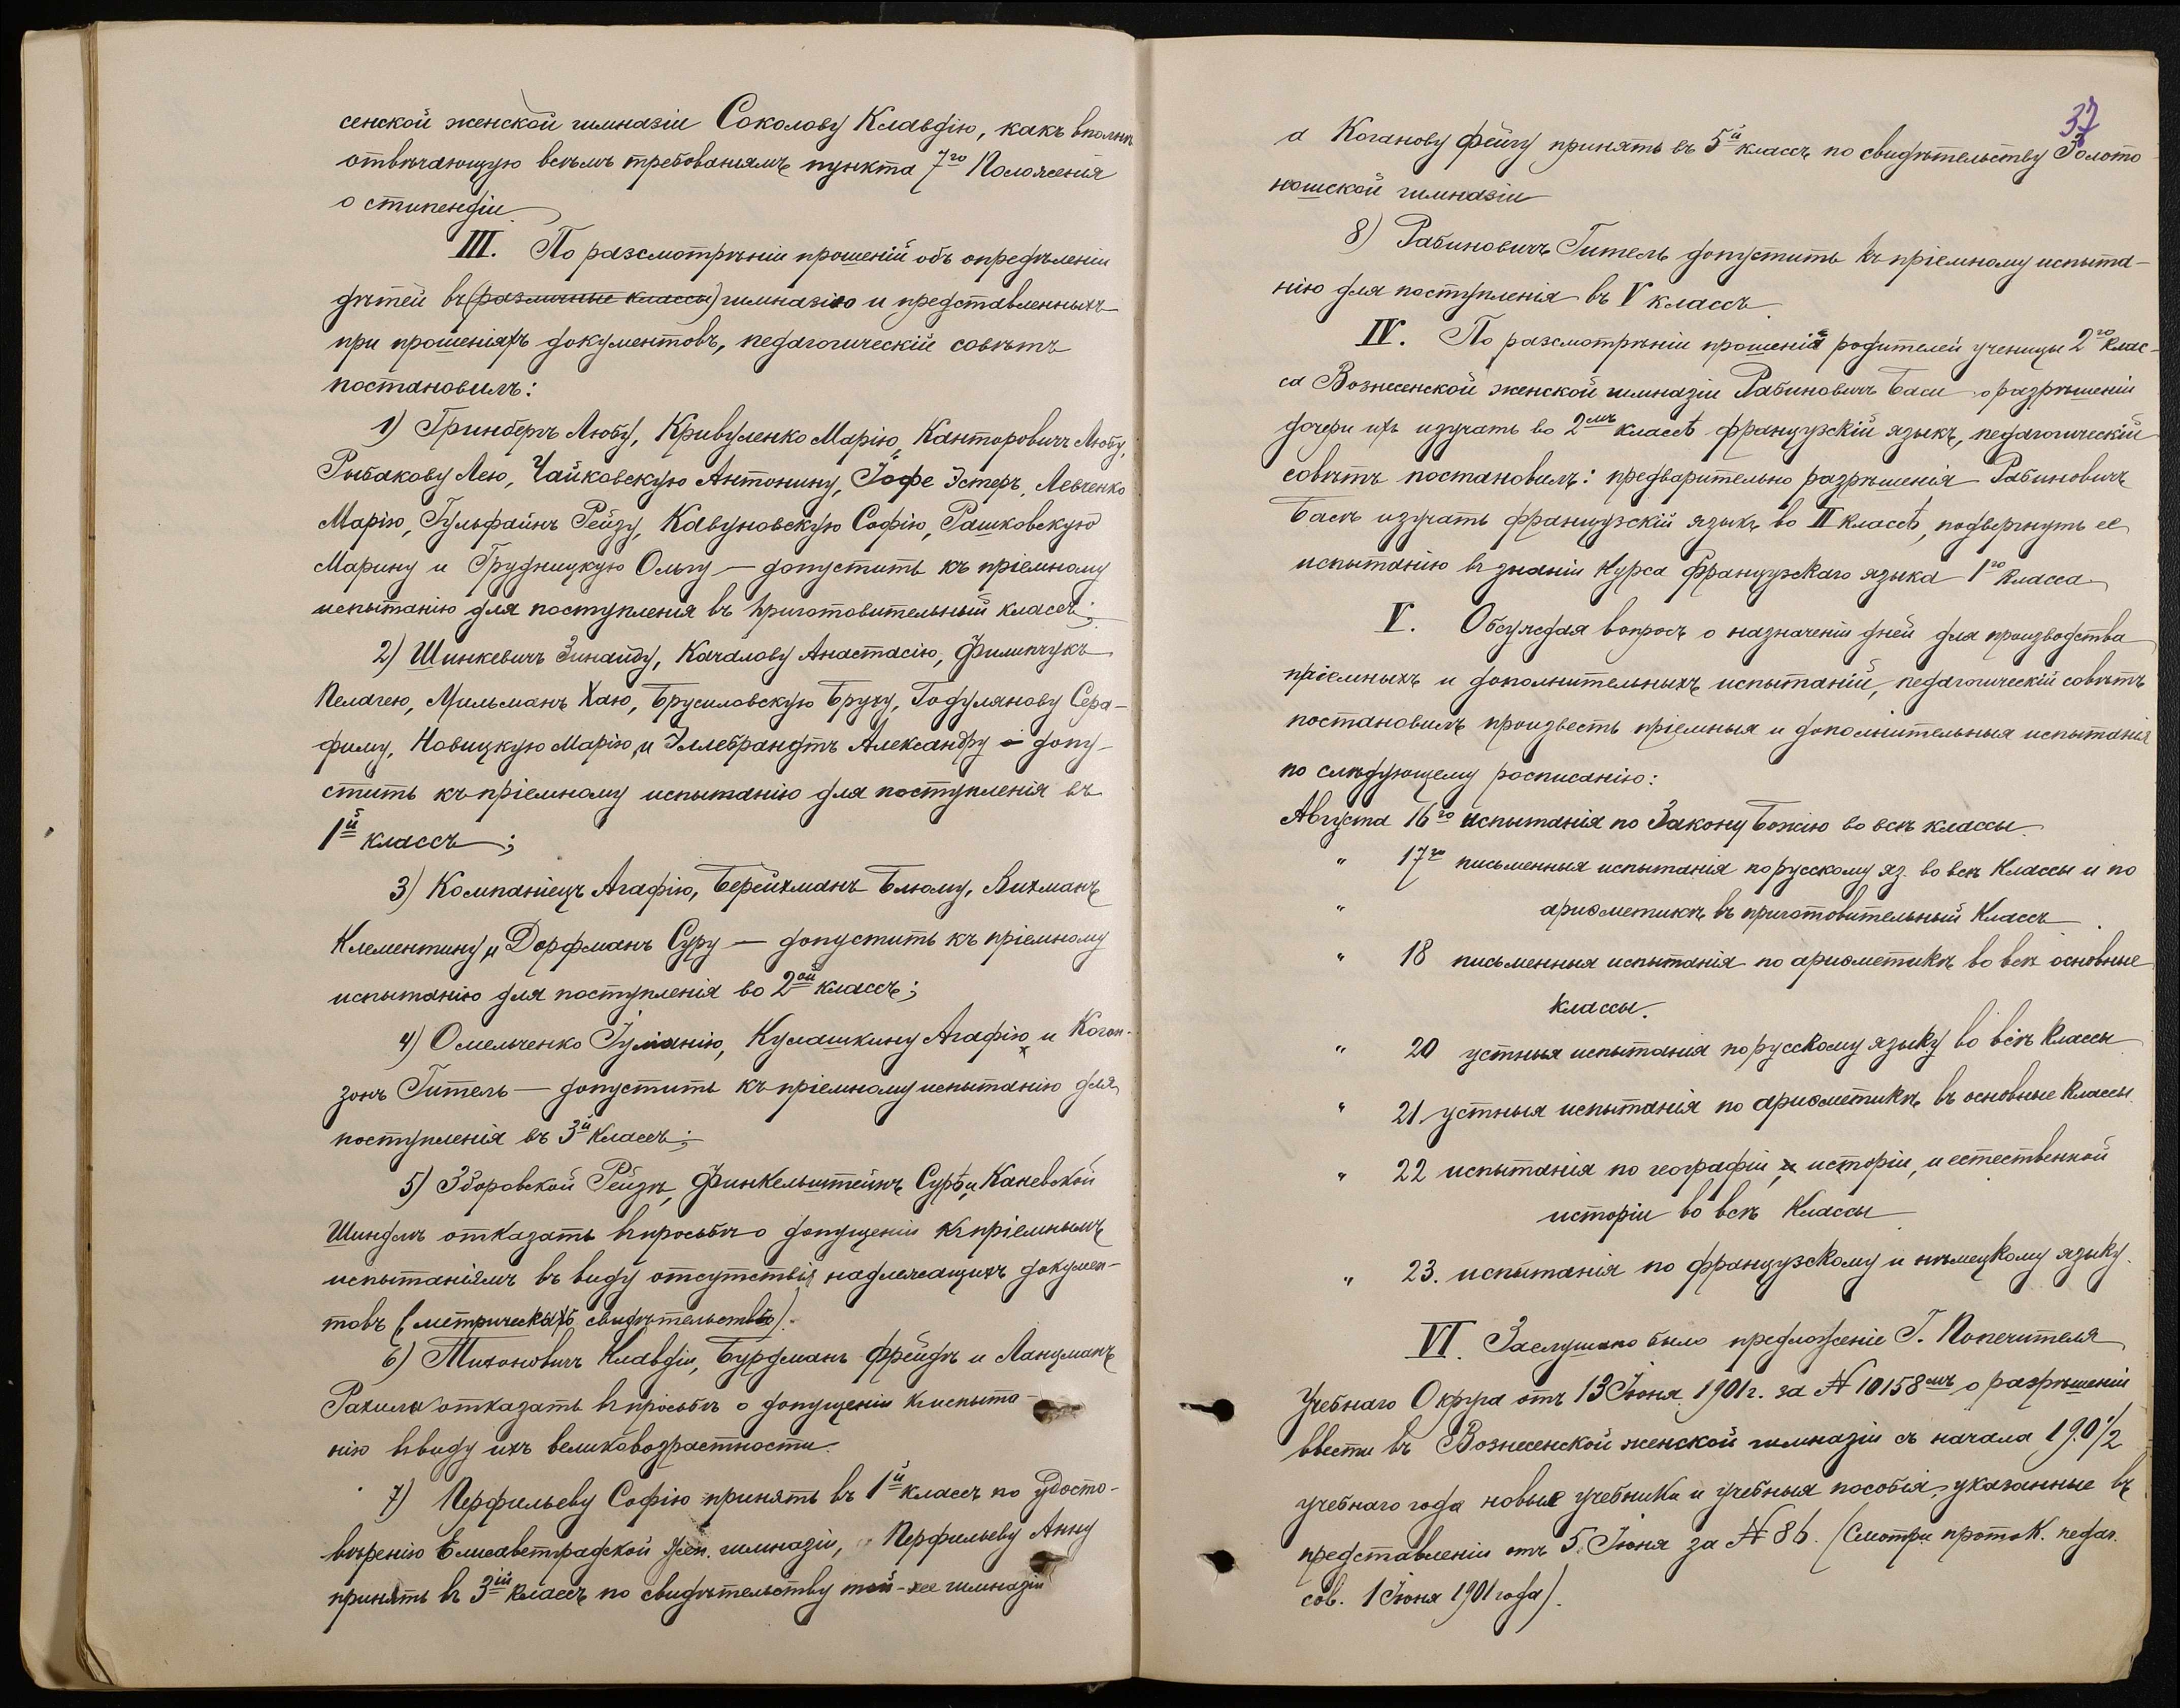 сенской женской гимназіи Соколову Клавдію, какъ вполнѣ
отвѣчающую всѣмъ требованіямъ пункта 7го Положенія
о стипендіи.
III. По разсмотрѣніи прошеній объ опредѣленіи
дѣтей въ (различные классы) гимназію и представленныхъ
при прошеніяхъ документовъ, педагогическій совѣтъ
постановилъ:
1) Гринбергъ Любу, Кривуленко Марію, Канторовичъ Любу,
Рыбакову Лею, Чайковскую Антонину, Іофе Эстеръ, Левченко
Марію, Гульфайнъ Рейзу, Кавуновскую Софію, Рашковскую
Марину и Грудницкую Ольгу — допустить къ пріемному
испытанію для поступленія въ приготовительный классъ;
2) Шинкевичъ Зинаиду, Качалову Анастасію, Филипчукъ
Пелагею, Мильманъ Хаю, Брусиловскую Бруху, Годулянову Сера-
фиму, Новицкую Марію, и Эллебрандтъ Александру — допу-
стить къ пріемному испытанію для поступленія въ
1й классъ;
3) Компаніецъ Агафію, Берейхманъ Блюму, Вихманъ
Клементину, и Дорфманъ Суру — допустить къ пріемному
испытанію для поступленія во 2ой классъ;
4) Омельченко Іуліанію, Кулашкину Агафію и Коган-
зонъ Гитель — допустить къ пріемному испытанію для
поступленія въ 3й классъ;
5) Зборовской Рейзѣ, Финкельштейнъ Сурѣ, и Каневской
Шиндлѣ отказать въ просьбѣ о допущеніи къ пріемнымъ
испытаніямъ въ виду отсутствія надлежащихъ докумен-
товъ (метрическихъ свидѣтельствъ).
6) Тихоновичъ Клавдіи, Бурдманъ Фрейдѣ и Ланцманъ
Рахили отказать въ просьбѣ о допущеніи къ испыта-
нію въ виду ихъ великовозрастности.
7) Перфильеву Софію принять въ 1й классъ по удосто-
вѣренію Елисаветградской жен. гимназіи, Перфильеву Анну
принять въ 3ій классъ по свидѣтельству той-же гимназіи
37
а Коганову Фейгу принять въ 5й классъ по свидѣтельству Золото-
ношской гимназіи
8) Рабиновичъ Гитель допустить къ пріемному испыта-
нію для поступленія въ V классъ.
IV. По разсмотрѣніи прошенія родителей ученицы 2го клас-
са Вознесенской женской гимназіи Рабиновичъ Баси о разрѣшеніи
дочери ихъ изучать во 2мъ классѣ французскій языкъ, педагогическій
совѣтъ постановилъ: предварительно разрѣшенія Рабиновичъ
Басѣ изучать французскій языкъ во II классѣ, подвергнуть ее
испытанію въ знаніи курса французскаго языка 1го класса
V. Обсуждая вопросъ о назначеніи дней для производства
пріемныхъ и дополнительныхъ испытаній, педагогическій совѣтъ
постановилъ произвесть пріемныя и дополнительныя испытанія
по слѣдующему росписанію:
Августа 16го испытанія по Закону Божію во всѣ классы.
" 17го письменныя испытанія по русскому яз. во всѣ классы и по
" ариѳметикѣ въ приготовительный классъ.
" 18 письменныя испытанія по ариѳметикѣ во всѣ основные
классы.
" 20 устныя испытанія по русскому языку во всѣ классы
" 21 устныя испытанія по ариѳметикѣ въ основные классы.
" 22 испытанія по географіи, и исторіи, и естественной
исторіи во всѣ классы
" 23. испытанія по французскому и нѣмецкому языку.
VI. Заслушано было предложеніе Г. Попечителя
Учебнаго Округа отъ 13 Іюня 1901 г. за № 10158мъ о разрѣшеніи
ввести въ Вознесенской женской гимназіи съ начала 190½
учебнаго года новые учебники и учебныя пособія, указанные въ
представленіи отъ 5 Іюня за № 86. (Смотри проток. педаг.
сов. 1 Іюня 1901 года).